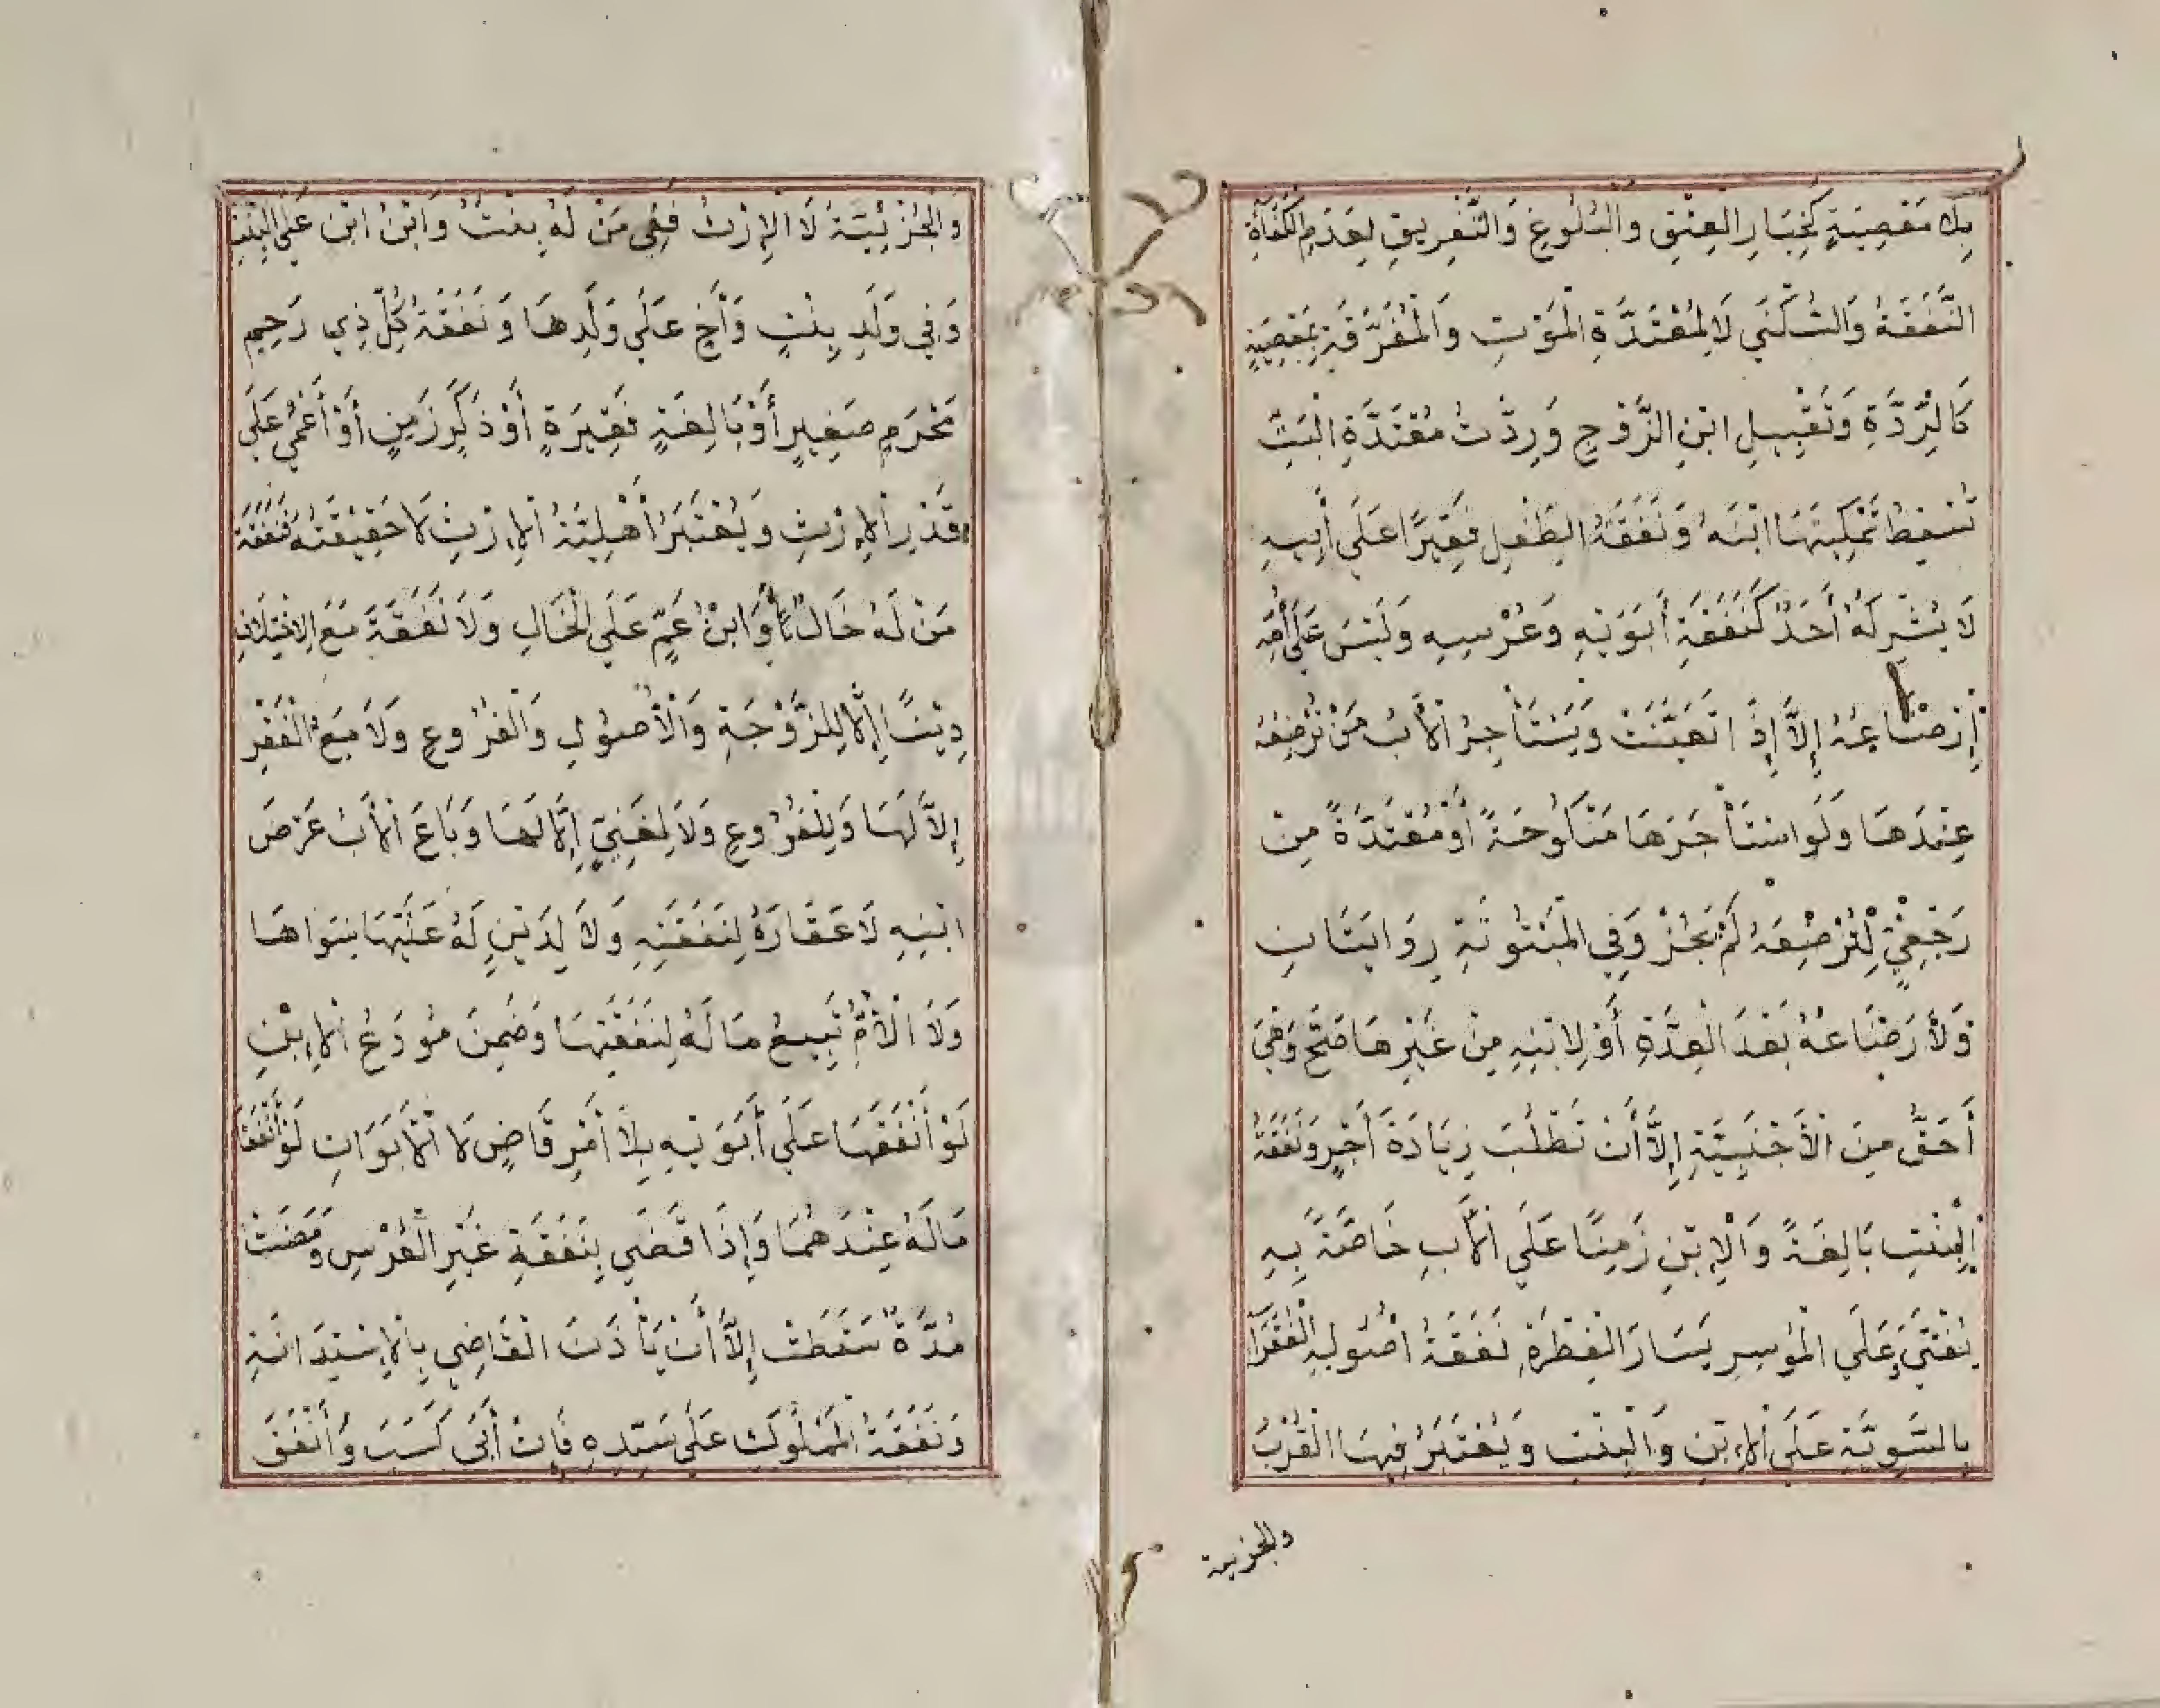 بِلَا مَعْصِيَةٍ كَخِيَارِ الْعِتْقِ وَالْبُلُوغِ وَالتَّفْرِيقِ لِعَدَمِ الْكَفَأَةِ
النَّفَقَةُ وَالسُّكْنَى لَا لِمُعْتَدَّةِ الْمَوْتِ وَالْمُفَرَّقَةِ بِمَعْصِيَةٍ
كَالرِّدَّةِ وَتَقْبِيلِ ابْنِ الزَّوْجِ وَرِدَّتُ مُعْتَدَّةِ الْبَتِّ
تُسْقِطُ تَمْكِينَهَا ابْنَهُ وَنَفَقَةُ الطِّفْلِ فَقِيرًا عَلَى أَبِيهِ
لَا يُشْرِكُهُ أَحَدٌ كَنَفَقَةِ أَبَوَيْهِ وَعُرْسِهِ وَلَيْسَ عَلَى أُمِّهِ
إِرْضَاعُهُ إِلَّا إِذَا تَعَيَّنَتْ وَيَسْتَأْجِرُ الْأَبُ مَنْ تُرْضِعُهُ
عِنْدَهَا وَلَوِ اسْتَأْجَرَهَا مَنْكُوحَةً أَوْ مُعْتَدَّةً مِنْ
رَجْعِيٍّ لِتُرْضِعَهُ لَمْ يَجُزْ وَفِي الْمَبْتُوتَةِ رِوَايَتَانِ
وَلِأَرْضَاعِهُ بَعْدَ الْعِدَّةِ أَوْ لِابْنِهِ مِنْ غَيْرِهَا صَحَّ وَهِيَ
أَحَقُّ مِنَ الْأَجْنَبِيَّةِ إِلَّا أَنْ تَطْلُبَ زِيَادَةَ أَجْرٍ وَنَفَقَةُ
الْبِنْتِ بَالِغَةً وَالْإِبْنِ زَمِنًا عَلَى الْأَبِ خَاصَّةً بِهِ
يُفْتَى وَعَلَى الْمُوسِرِ يَسَارَ الْفِطْرَةِ نَفَقَةُ اصُولِهِ الْفُقَرَآ
بِالسَّوِيَّةِ عَلَى الْإِبْنِ وَالْبِنْتِ وَيُعْتَبَرُ فِيهَا الْقُرْبُ
والجزيية
وَالْجُزْئِيَّةُ لَا الْإِرْثُ فَفِي مَنْ لَهُ بِنْتٌ وَابْنُ ابْنٍ عَلَى الْبِنْتِ
وَفِي وَلَدِ بِنْتٍ وَأَخٍ عَلَى وَلَدِهَا وَنَفَقَةُ كُلِّ ذِي رَحِمٍ
مَحْرَمٍ صَغِيرٍ أَوْ بَالِغَةٍ فَقِيرَةٍ أَوْ ذَكَرٍ زَمِنٍ أَوْ أَعْمَى عَلَى
قَدْرِ الْإِرْثِ وَيُعْتَبَرُ أَهْلِيَّةُ الْإِرْثِ لَا حَقِيقَتُهُ فَنَفَقَةُ
مَنْ لَهُ خَالٌ وَابْنُ عَمٍّ عَلَى الْخَالِ وَلَا نَفَقَةَ مَعَ الِاخْتِلَافِ
دِينًا إِلَّا لِلزَّوْجَةِ وَالْأُصُولِ وَالْفُرُوعِ وَلَا مَعَ الْفَقْرِ
إِلَّا لَهَا وَلِلْفُرُوعِ وَلَا لِغَنِيٍّ إِلَّا لَهَا وَبَاعَ الْأَبُ عَرْضَ
ابْنِهِ لَا عَقَارَهُ لِنَفَقَتِهِ وَلَا لِدَيْنٍ لَهُ عَلَيْهَا سِوَاهَا
وَلَا الْأُمُّ تَبِيعُ مَالَهُ لِنَفَقَتِهَا وَضَمِنَ مُودَعُ الْإِبْنِ
لَوْ أَنْفَقَهَا عَلَى أَبَوَيْهِ بِلَا أَمْرِ قَاضٍ لَا الْأَبَوَانِ لَوْ أَنْفَقَا
مَالَهُ عِنْدَهُمَا وَإِذَا قَضَى بِنَفَقَةِ غَيْرِ الْعُرْسِ وَمَضَتْ
مُدَّةٌ سَقَطَتْ إِلَّا أَنْ يَأْذَنَ الْقَاضِي بِالْإِسْتِدَانَةِ
وَنَفَقَةُ الْمَمْلُوكِ عَلَى سَيِّدِهِ فَإِنْ أَبَى كَسَبَ وَأَنْفَقَ